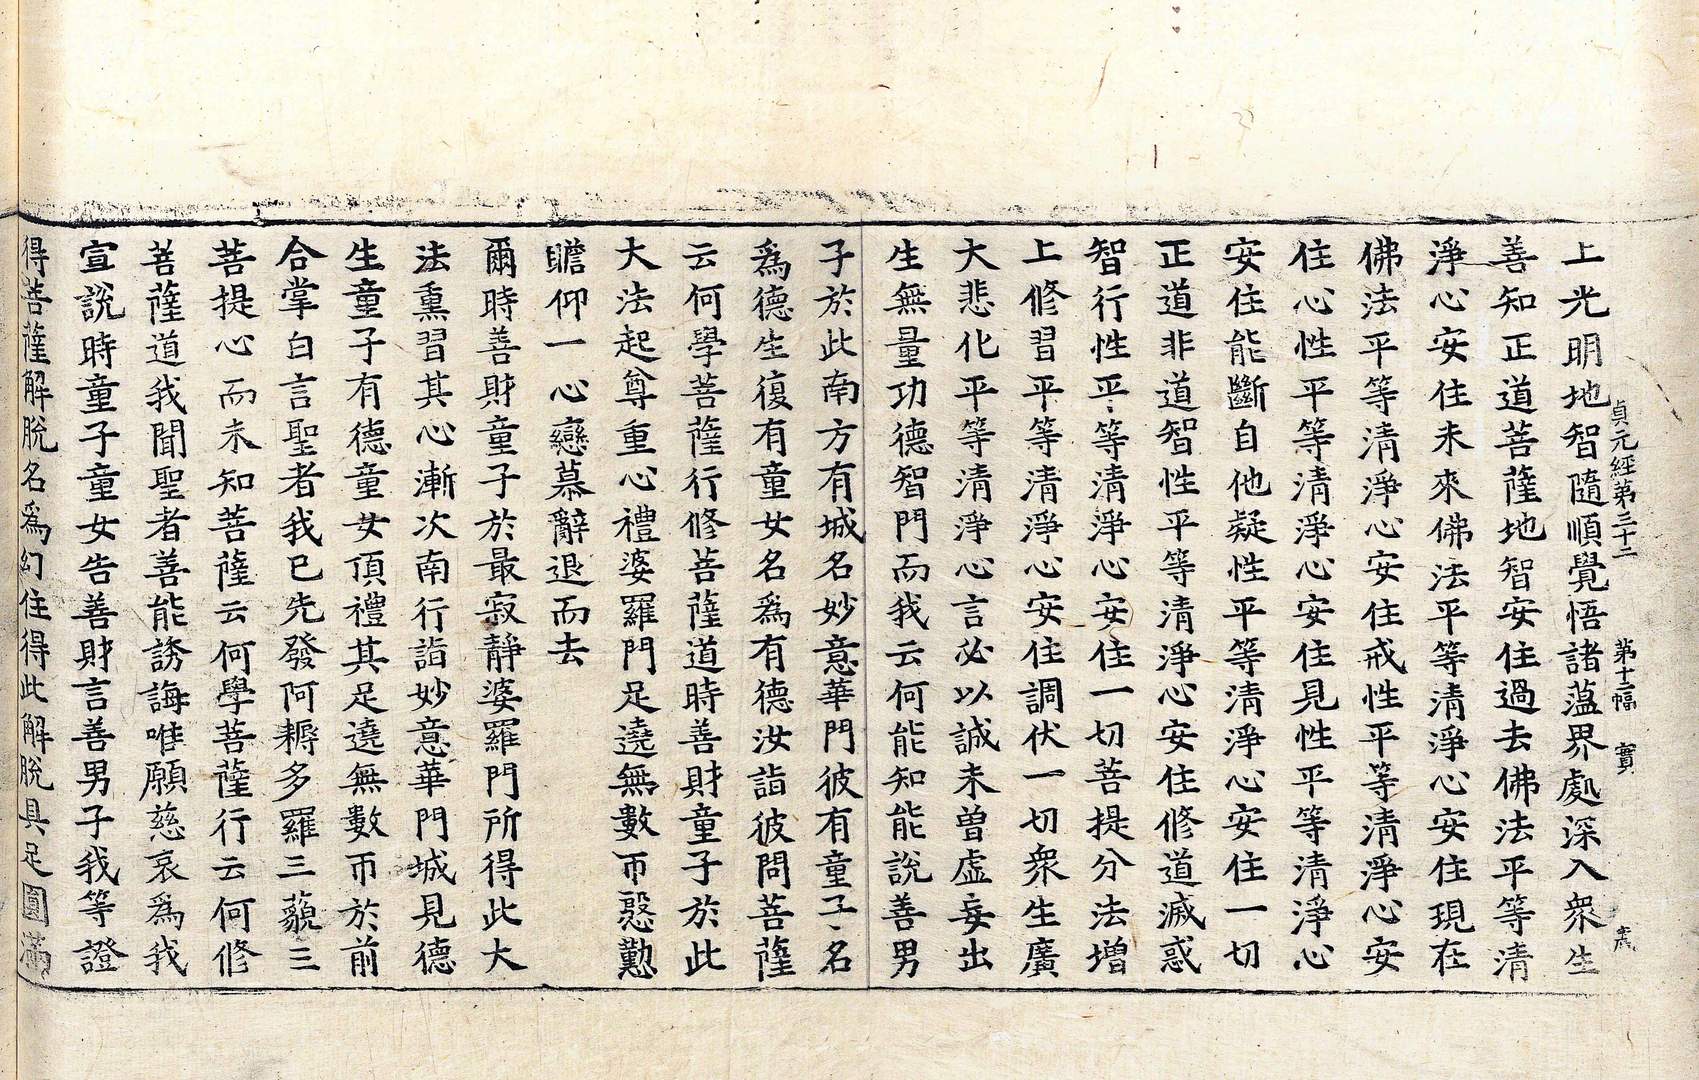 貞元經第三十二　第十二幅　實
上光明地智隨順覺悟諸蘊界處深入衆生
善知正道菩薩地智安住過去佛法平等清
淨心安住未來佛法平等清淨心安住現在
佛法平等清淨心安住戒性平等清淨心安
住心性平等清淨心安住見性平等清淨心
安住能斷自他疑性平等清淨心安住一切
正道非道智性平等清淨心安住修道滅惑
智行性平等清淨心安住一切菩提分法增
上修習平等清淨心安住調伏一切衆生廣
大悲化平等清淨心言必以誠未曾虛妄出
生無量功德智門而我云何能知能說善男
子於此南方有城名妙意華門彼有童子名
爲德生復有童女名爲有德汝詣彼問菩薩
云何學菩薩行修菩薩道時善財童子於此
大法起尊重心禮婆羅門足遶無數帀慇懃
瞻仰一心戀慕辭退而去
爾時善財童子於最寂靜婆羅門所得此大
法熏習其心漸次南行詣妙意華門城見德
生童子有德童女頂禮其足遶無數帀於前
合掌白言聖者我已先發阿耨多羅三藐三
菩提心而未知菩薩云何學菩薩行云何修
菩薩道我聞聖者善能誘誨唯願慈哀爲我
宣說時童子童女告善財言善男子我等證
得菩薩解脫名爲幻住得此解脫具足圓滿